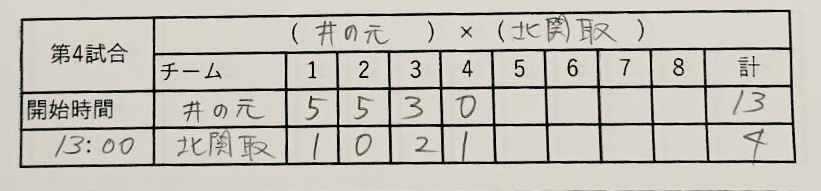 第4試合 (井の元) × (北関取)
チーム 1 2 3 4 5 6 7 8 計
開始時間 井の元 5 5 3 0 13
13:00 北関取 1 0 2 1 4